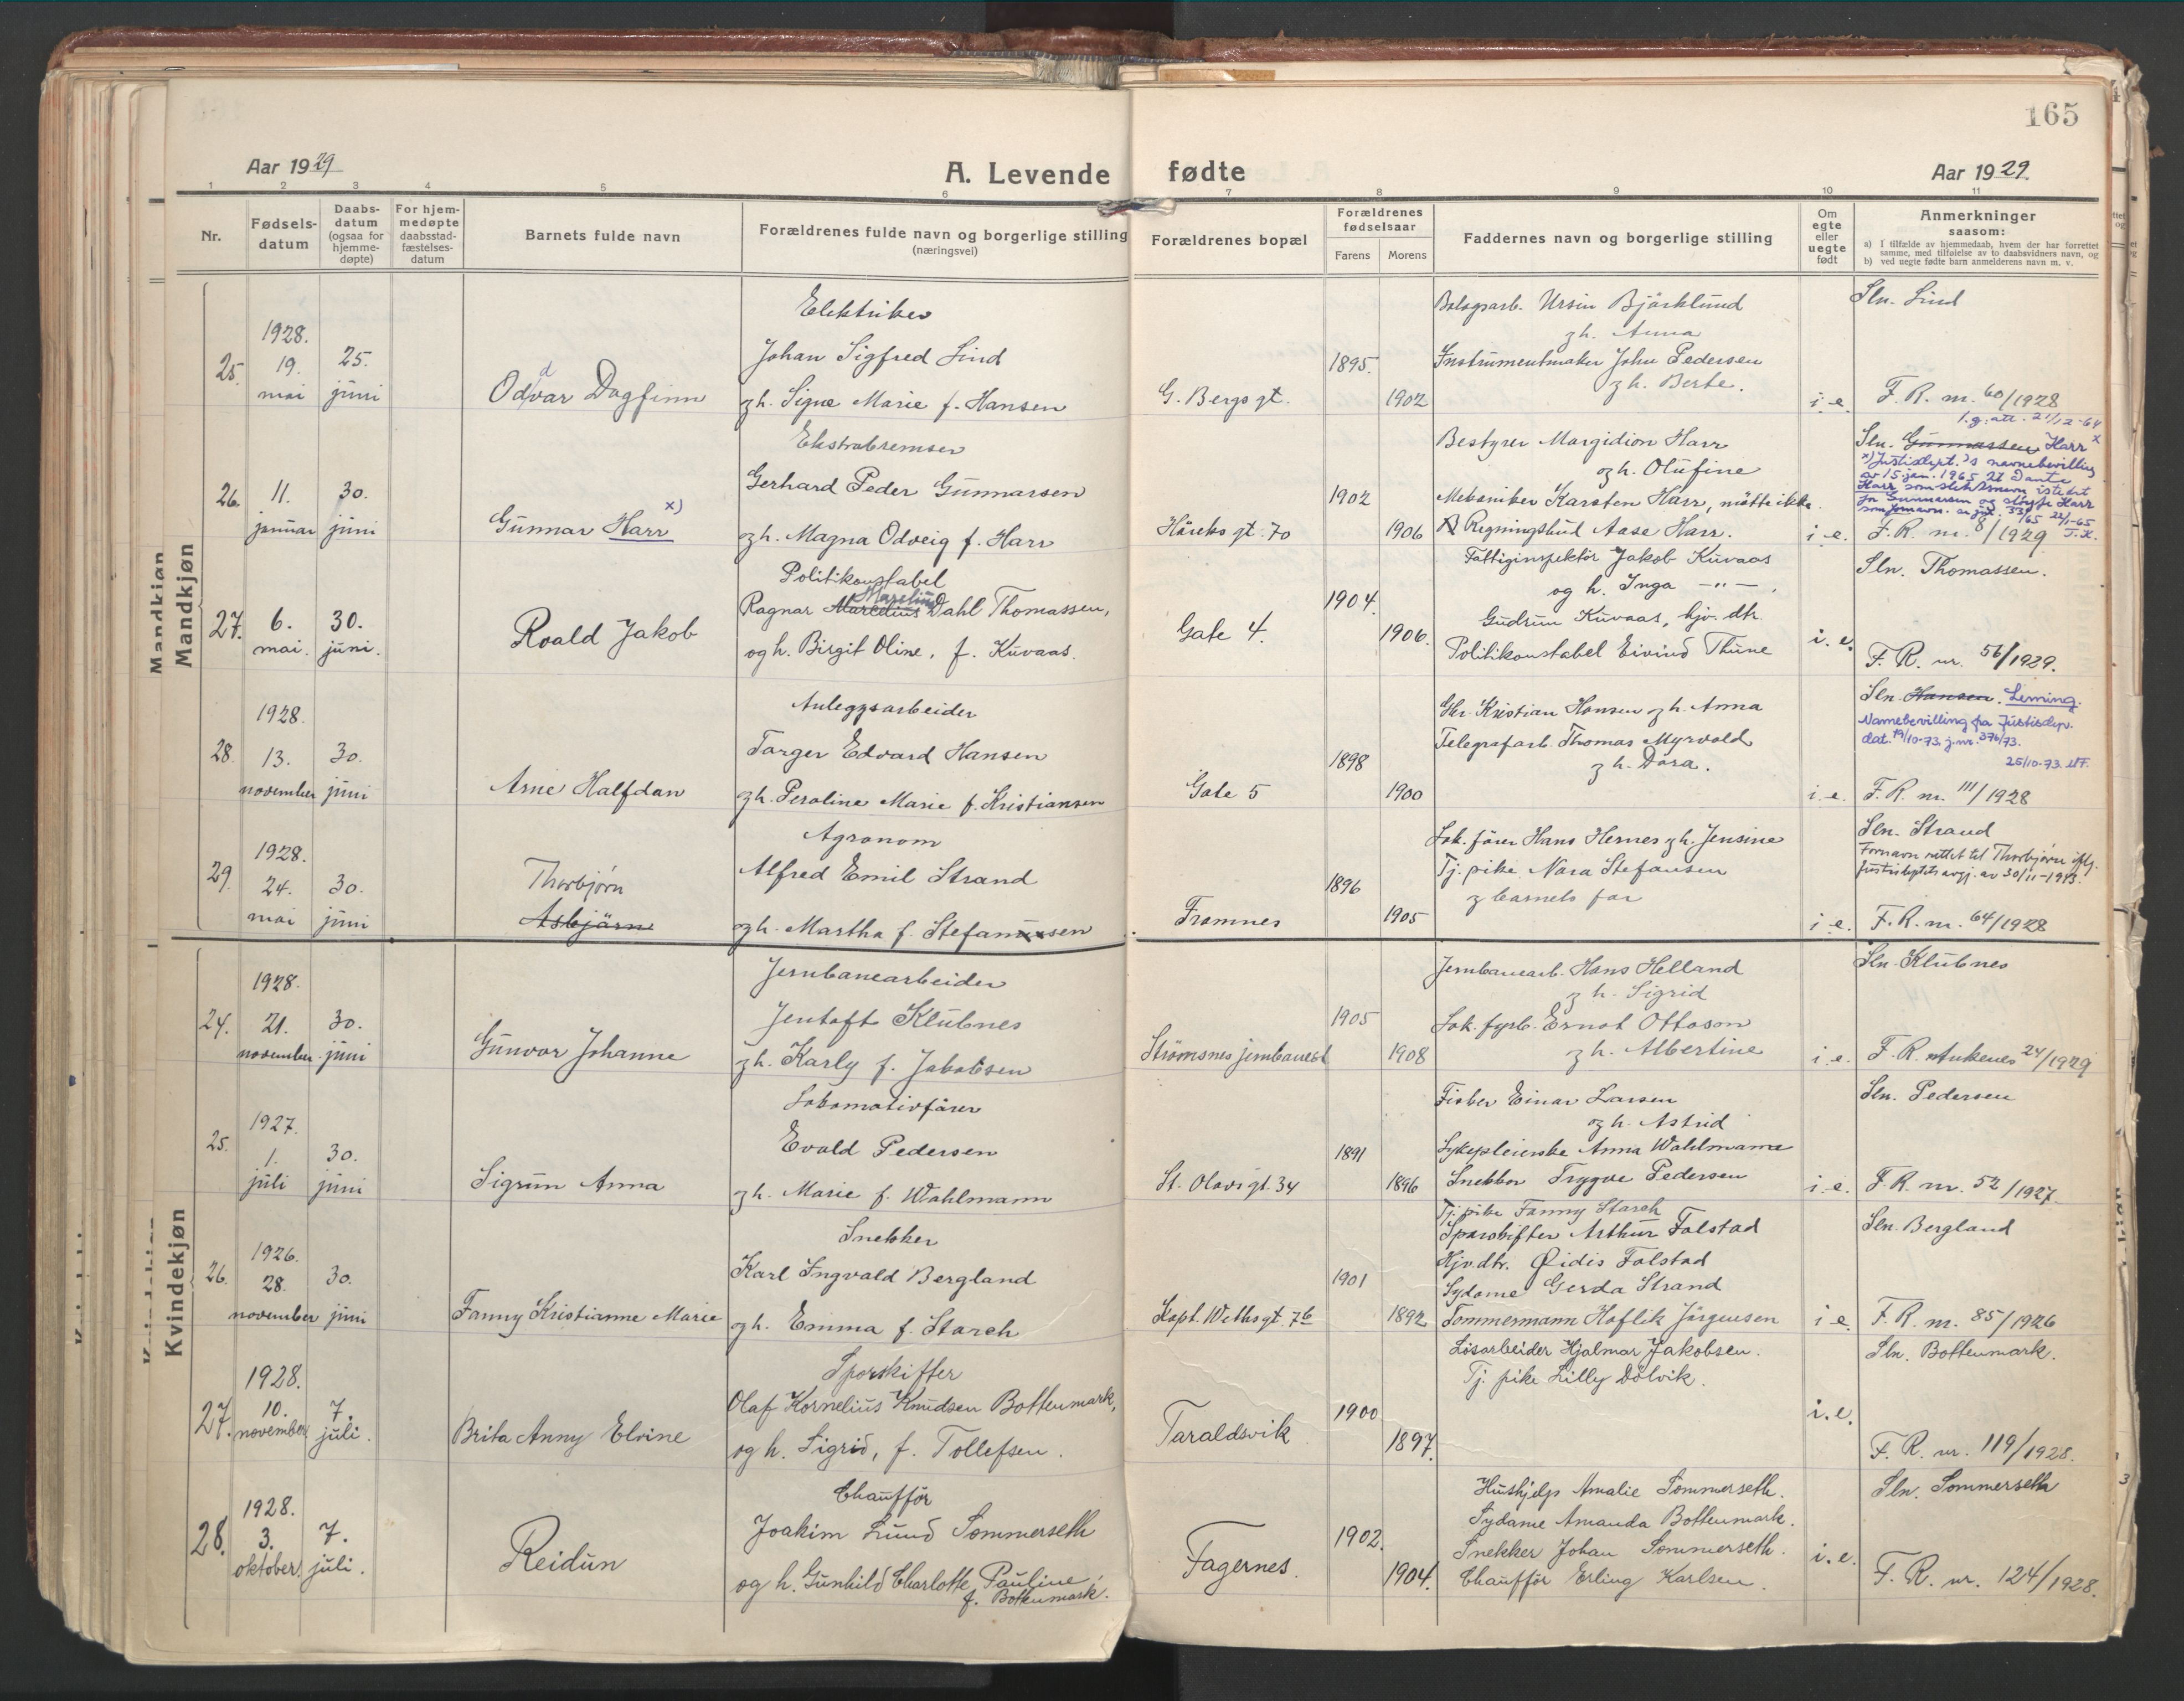 165
Aar 1929
A. Levende fødte
Aar 1929.
1 2 3 4 5 6 7 8 9 10 11
Nr.
Fødsels-
datum
Daabs-
datum
(ogsaa for
hjemme-
døpte)
For hjem-
medøpte
daabsstad-
fæstelses-
datum
Barnets fulde navn
Forældrenes fulde navn og borgerlige stilling
(næringsvei)
Forældrenes bopæl
Forældrenes
fødselsaar
Farens Morens
Faddernes navn og borgerlige stilling
Om
egte
eller
uegte
født
Anmerkninger
saasom:
a) I tilfælde av hjemmedaab, hvem der har forrettet
samme, med tilføielse av to daabsvidners navn, og
b) ved uegte fødte barn anmelderens navn m. v.
Mandkjøn
25.
1928.
19.
mai
25.
juni
Oddvar Dagfinn
Elektriker
Johan Sigfred Lind
og h. Signe Marie f. Hansen
G. Bergs gt.
1895.
1902
Bologsarb. Ursin Bjørklund
og h. Anna
Instrumentmaker John Pedersen
og h. Berte.
i. e.
Sln. Lind
F. R. nr. 60/1928
26.
11.
januar
30.
juni
Gunnar Harr x)
Ekstrabremser
Gerhard Peder Gunnarsen
og h. Magna Odveig f. Harr
Håreks gt. 70
1902
1906
Bestyrer Margidion Harr
og h. Olufine
Mekaniker Karsten Harr, møtte ikke.
Regningsbud Aase Harr.
i. e.
l. g. att. 21/12-64
Sln. Gunnarsen Harr x
x) Justisdept.'s navnebevilling
av 15 jan. 1965 til Dante
Harr som slektsnavn istedet
for Gunnarsen og sløyfe Harr
som fornavn.
22/1-65
F. R. nr. 8/1929
27.
6.
mai.
30.
juni.
Roald Jakob
Politikonstabel
Marelius
Ragnar Marcelius Dahl Thomassen,
og h. Birgit Oline, f. Kuvaas.
Gate 4.
1904.
1906.
Fattiginspektør Jakob Kuvaas
og h. Inga —"— ,
Gudrun Kuvaas, hjv. dtr.
Politikonstabel Eivind Thune
i. e.
Sln. Thomassen.
F. R. nr. 56/1929.
28.
1928.
13.
november
30.
juni
Arne Halfdan
Anleggsarbeider
Torger Edvard Hansen
og h. Peroline Marie f. Kristiansen
Gate 5
1898
1900
Gbr. Kristian Hansen og h. Anna
Telegrafarb. Thomas Myrvold
og h. Dora.
i. e.
Sln. Hansen. Leming.
Navnebevilling fra Justisdep.
dat. 19/10-73, j.nr. 376/73.
25/10-73.
F. R. nr. 111/1928
29.
1928.
24.
mai
30.
juni
Thorbjørn
Asbjørn
Agronom
Alfred Emil Strand
og h. Martha f. Stefanussen
Framnes
1896
1905
Lok. fører Hans Hernes og h. Jensine
Tj. pike Nora Stefansen
og barnets far
i. e.
Sln. Strand
Fornavn rettet til Thorbjørn iflg.
Justisdeptets avgj. av 30/11-1943.
F. R. nr. 64/1928
Kvindekjøn
24.
1928.
21.
november
30.
juni
Gunvor Johanne
Jernbanearbeider
Jentoft Klubnes
og h. Karly f. Jakobsen
Strømsnes jernbanest
1905
1908
Jernbanearb. Hans Helland
og h. Sigrid
Lok. fyrb. Ernst Ottoson
og h. Albertine
i. e.
Sln. Klubnes
F. R. Ankenes 24/1929
25.
1927.
1.
juli
30.
juni
Sigrun Anna
Lokomotivfører
Evald Pedersen
og h. Marie f. Wahlmann
St. Olavs gt. 34
1891
1896
Fisker Einar Larsen
og h. Astrid
Sykepleierske Anna Wahlmann
Snekker Trygve Pedersen
i. e.
Sln. Pedersen
F. R. nr. 52/1927.
26.
1926.
28.
november
30.
juni
Fanny Kristianne Marie
Snekker
Karl Ingvald Bergland
og h. Emma f. Storch
Kapt. Weths gt. 7b
1901
1892
Tj. pike Fanny Storch
Sporskifter Arthur Falstad
Hjv. dtr. Eidis Falstad
Sydame Gerda Strand
Tømmermann Hoflik Jørgensen
i e.
Sln. Bergland
F. R. nr. 85/1926
27.
1928.
10.
november
7.
juli.
Brita Anny Elvine
Sporskifter
Olaf Kornelius Knudsen Bottenmark,
og h. Sigrid, f. Tollefsen.
Taraldsvik
1900
1897.
Løsarbeider Hjalmar Jakobsen.
Tj. pike Lilly Dølvik.
i. e.
Sln. Bottenmark.
F. R. nr. 119/1928.
28.
1928.
3.
oktober.
7.
juli.
Reidun
Chauffør
Joakim Lund Sommerseth
og h. Gunhild Charlotte Pauline,
f. Bottenmark.
Fagernes.
1902.
1904.
Hushjelp Amalie Sommerseth.
Sydame Amanda Bottenmark.
Snekker Johan Sommerseth.
Chauffør Erling Karlsen.
i. e.
Sln. Sommerseth
F. R. nr. 124/1928.